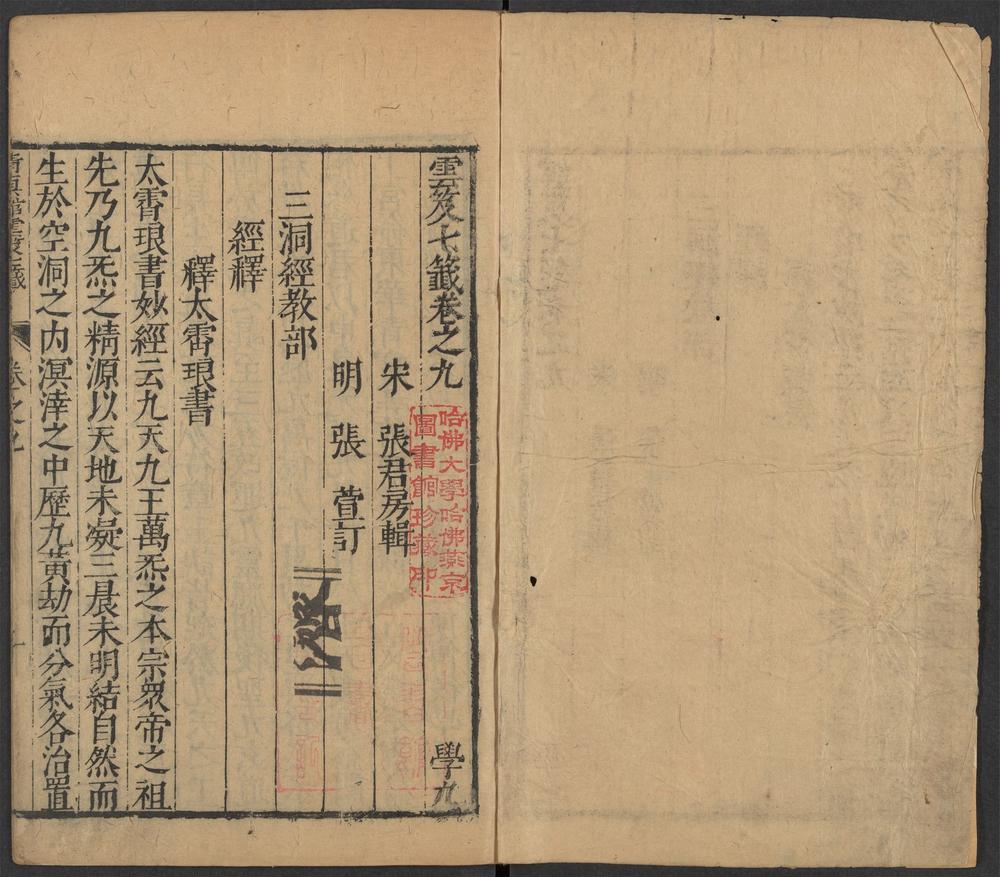 雲笈七籤卷之九
學九
宋 張君房輯
明 張 萱訂
三洞經教部
經釋
釋太霄琅書
太霄琅書妙經云九天九王萬炁之本宗眾帝之祖
先乃九炁之精源以天地未凝三晨未明結自然而
生於空洞之内溟涬之中歷九黃劫而分氣各治置
卷之九
哈佛大學哈佛燕京
圖書館珍藏印